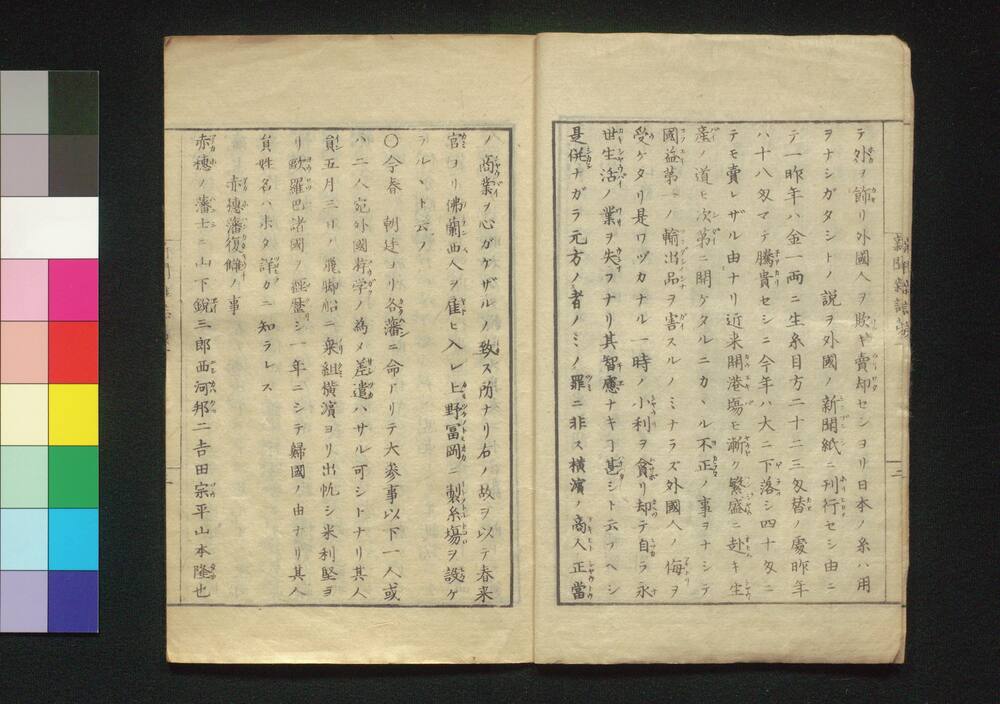 テ外ヲ飾リ外國人ヲ欺キ賣却セシヨリ日本ノ糸ハ用
ヲナシガタシトノ説ヲ外國ノ新聞紙ニ刊行セシ由ニ
テ一昨年ハ金一両ニ生糸目方二十二三匁替ノ處昨年
ハ十八匁マテ騰貴セシニ今年ハ大ニ下落シ四十匁ニ
テモ賣レザル由ナリ近来開港塲モ漸ク繁盛ニ赴キ生
産ノ道モ次第ニ開ケタルニカヽル不正ノ事ヲナシテ
國益第一ノ輸出品ヲ害スルノミナラズ外國人ノ侮ヲ
受ケタリ是ワヅカナル一時ノ小利ヲ貪リ却テ自ラ永
世生活ノ業ヲ失フナリ其智慮ナキヿ甚シト云フヘシ
是併ナガラ元方ノ者ノミノ罪ニ非ス横濱ノ商人正當
ノ商業ヲ心ガケザルノ致ス所ナリ右ノ故ヲ以テ春来
官ヨリ佛蘭西人ヲ雇ヒ入レ上野冨岡ニ製糸塲ヲ設ケ
ラルヽト云フ
〇今春 朝廷ヨリ各藩ニ命ドリテ大参事以下一人或
ハ二人宛外國留学ノ為メ差遣ハサル可シトナリ其人
員五月三日ノ飛脚船ニ乗組横濱ヨリ出帆シ米利堅ヨ
リ歐羅巴諸國ヲ經歴シ一年ニシテ歸國ノ由ナリ其人
員姓名ハ未タ詳カニ知ラレス
赤穗藩復讎ノ事
赤穗ノ藩士ニ山下鋭三郎西河邦二吉田宗平山本隆也